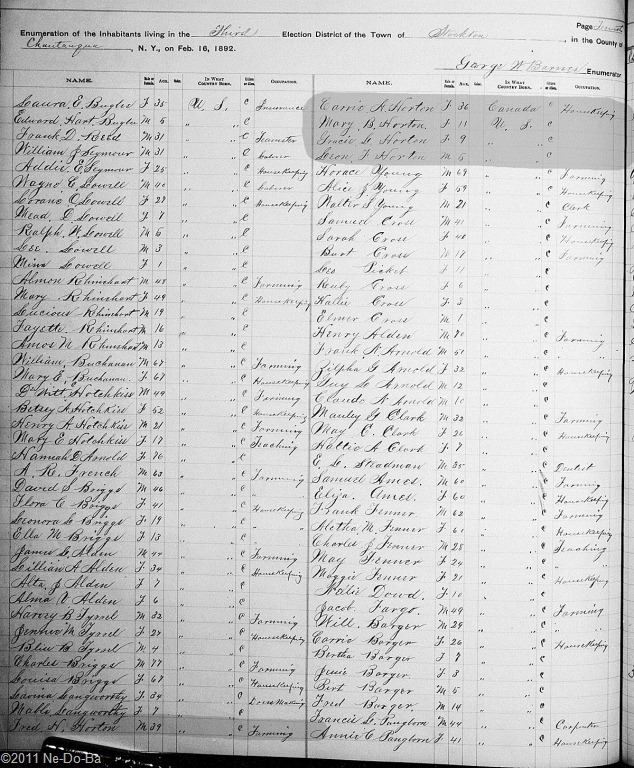 Page
Enumeration of the Inhabitants living in the Third Election District of the Town of Stockton, in the County of
Chautauqua, N. Y., on Feb. 16, 1892.
George W Barnes Enumerator
NAME. AGE. IN WHAT COUNTRY BORN. OCCUPATION.
Laura E. Bugbee F 35 U. S. C Insurance
Edward Hart Bugbee M 5 " C
Frank D. Reed M 31 " C Teamster
William J Seymour M 31 " C
Addie E. Seymour F 25 " C Housekeeping
Wayne C Lowell M 40 " C
Lorane C Lowell F 28 " C Housekeeping
Mead D Lowell F 7 " C
Ralph W. Lowell M 5 " C
Lee Lowell M 3 " C
Mina Lowell F 1 " C
Almon Rhinehart M 48 " C Farming
Mary Rhinehart F 49 " C Housekeeping
Lucious Rhinehart M 19 " C
Fayette Rhinehart M 16 " C
Amos N Rhinehart M 13 " C
William Buchanan M 67 " C Farming
Mary E. Buchanan F 67 " C Housekeeping
De Witt Hotchkiss M 44 " C Farming
Betsey A Hotchkiss F 52 " C Housekeeping
Henry A Hotchkiss M 21 " C Farming
Mary E Hotchkiss F 17 " C Teaching
Hannah D Arnold F 76 " C
A. R. French M 63 " C Farming
David S Briggs M 46 " C "
Flora C Briggs F 41 " C Housekeeping
Leonora L Briggs F 19 " C "
Ella M Briggs F 13 " C
James L. Alden M 44 " C Farming
Lillian A Alden F 34 " C Housekeeping
Alta J Alden F 7 " C
Alma V Alden F 6 " C
Harvey B Tyrrel M 32 " C Farming
M Tyrrel F 27 " C Housekeeping
B Tyrrel M 4 " C
Charles Briggs M 77 " C Farming
Louisa Briggs F 67 " C Housekeeping
Lavina Langworthy F 34 " C Dress Making
Mable Langworthy F 7 " C
Fred N. Horton M 39 " C Farming
NAME. AGE. IN WHAT COUNTRY BORN. OCCUPATION.
Carrie A. Horton F 36 Canada C Housekeeping
Mary B. Horton F 11 U. S. C
Gracie L. Horton F 9 " C
Leon F Horton M 5 " C
Horace Young M 69 " C Farming
Alice J Young F 59 " C Housekeeping
Walter S Young M 21 " C Clark
Samuel Cross M 41 " C Farming
Sarah Cross F 48 " C Housekeeping
Burt Cross M 18 " C Farming
Picket F 11 " C
Ruby Cross F 6 " C
Hallie Cross F 3 " C
Elmer Cross M 1 " C
Henry Alden M 70 " C Farming
Frank R Arnold M 51 " C "
Zilpha G Arnold F 32 " C Housekeeping
Guy L Arnold M 12 " C
Claude N Arnold M 10 " C
Manley G Clark M 32 " C Farming
May C. Clark F 26 " C Housekeeping
Hattie A Clark F 7 " C
E. L. Steadman M 35 " C Dentist
Samuel Ames. M 60 " C Farming
Eliza Ames. F 60 " C Housekeeping
Frank Fenner M 62 " C Farming
Aletha M. Fenner F 61 " C Housekeeping
Charles J Fenner M 28 " C Teaching
May Fenner F 24 " C "
Maggie Fenner F 21 " C Housekeeping
Nelie Dowd F 10 " C
Jacob Fargo M 49 " C Farming
Will. Barger M 29 " C "
Carrie Barger F 26 " C Housekeeping
Bertha Barger F 7 " C
Jesie Barger F 3 " C
Bert Barger M 5 " C
Fred Barger M 14 " C
L. Pangborn M 44 " C Carpenter
Annie C Pangborn F 41 " C Housekeeping
©2011 Ne-Do-Ba